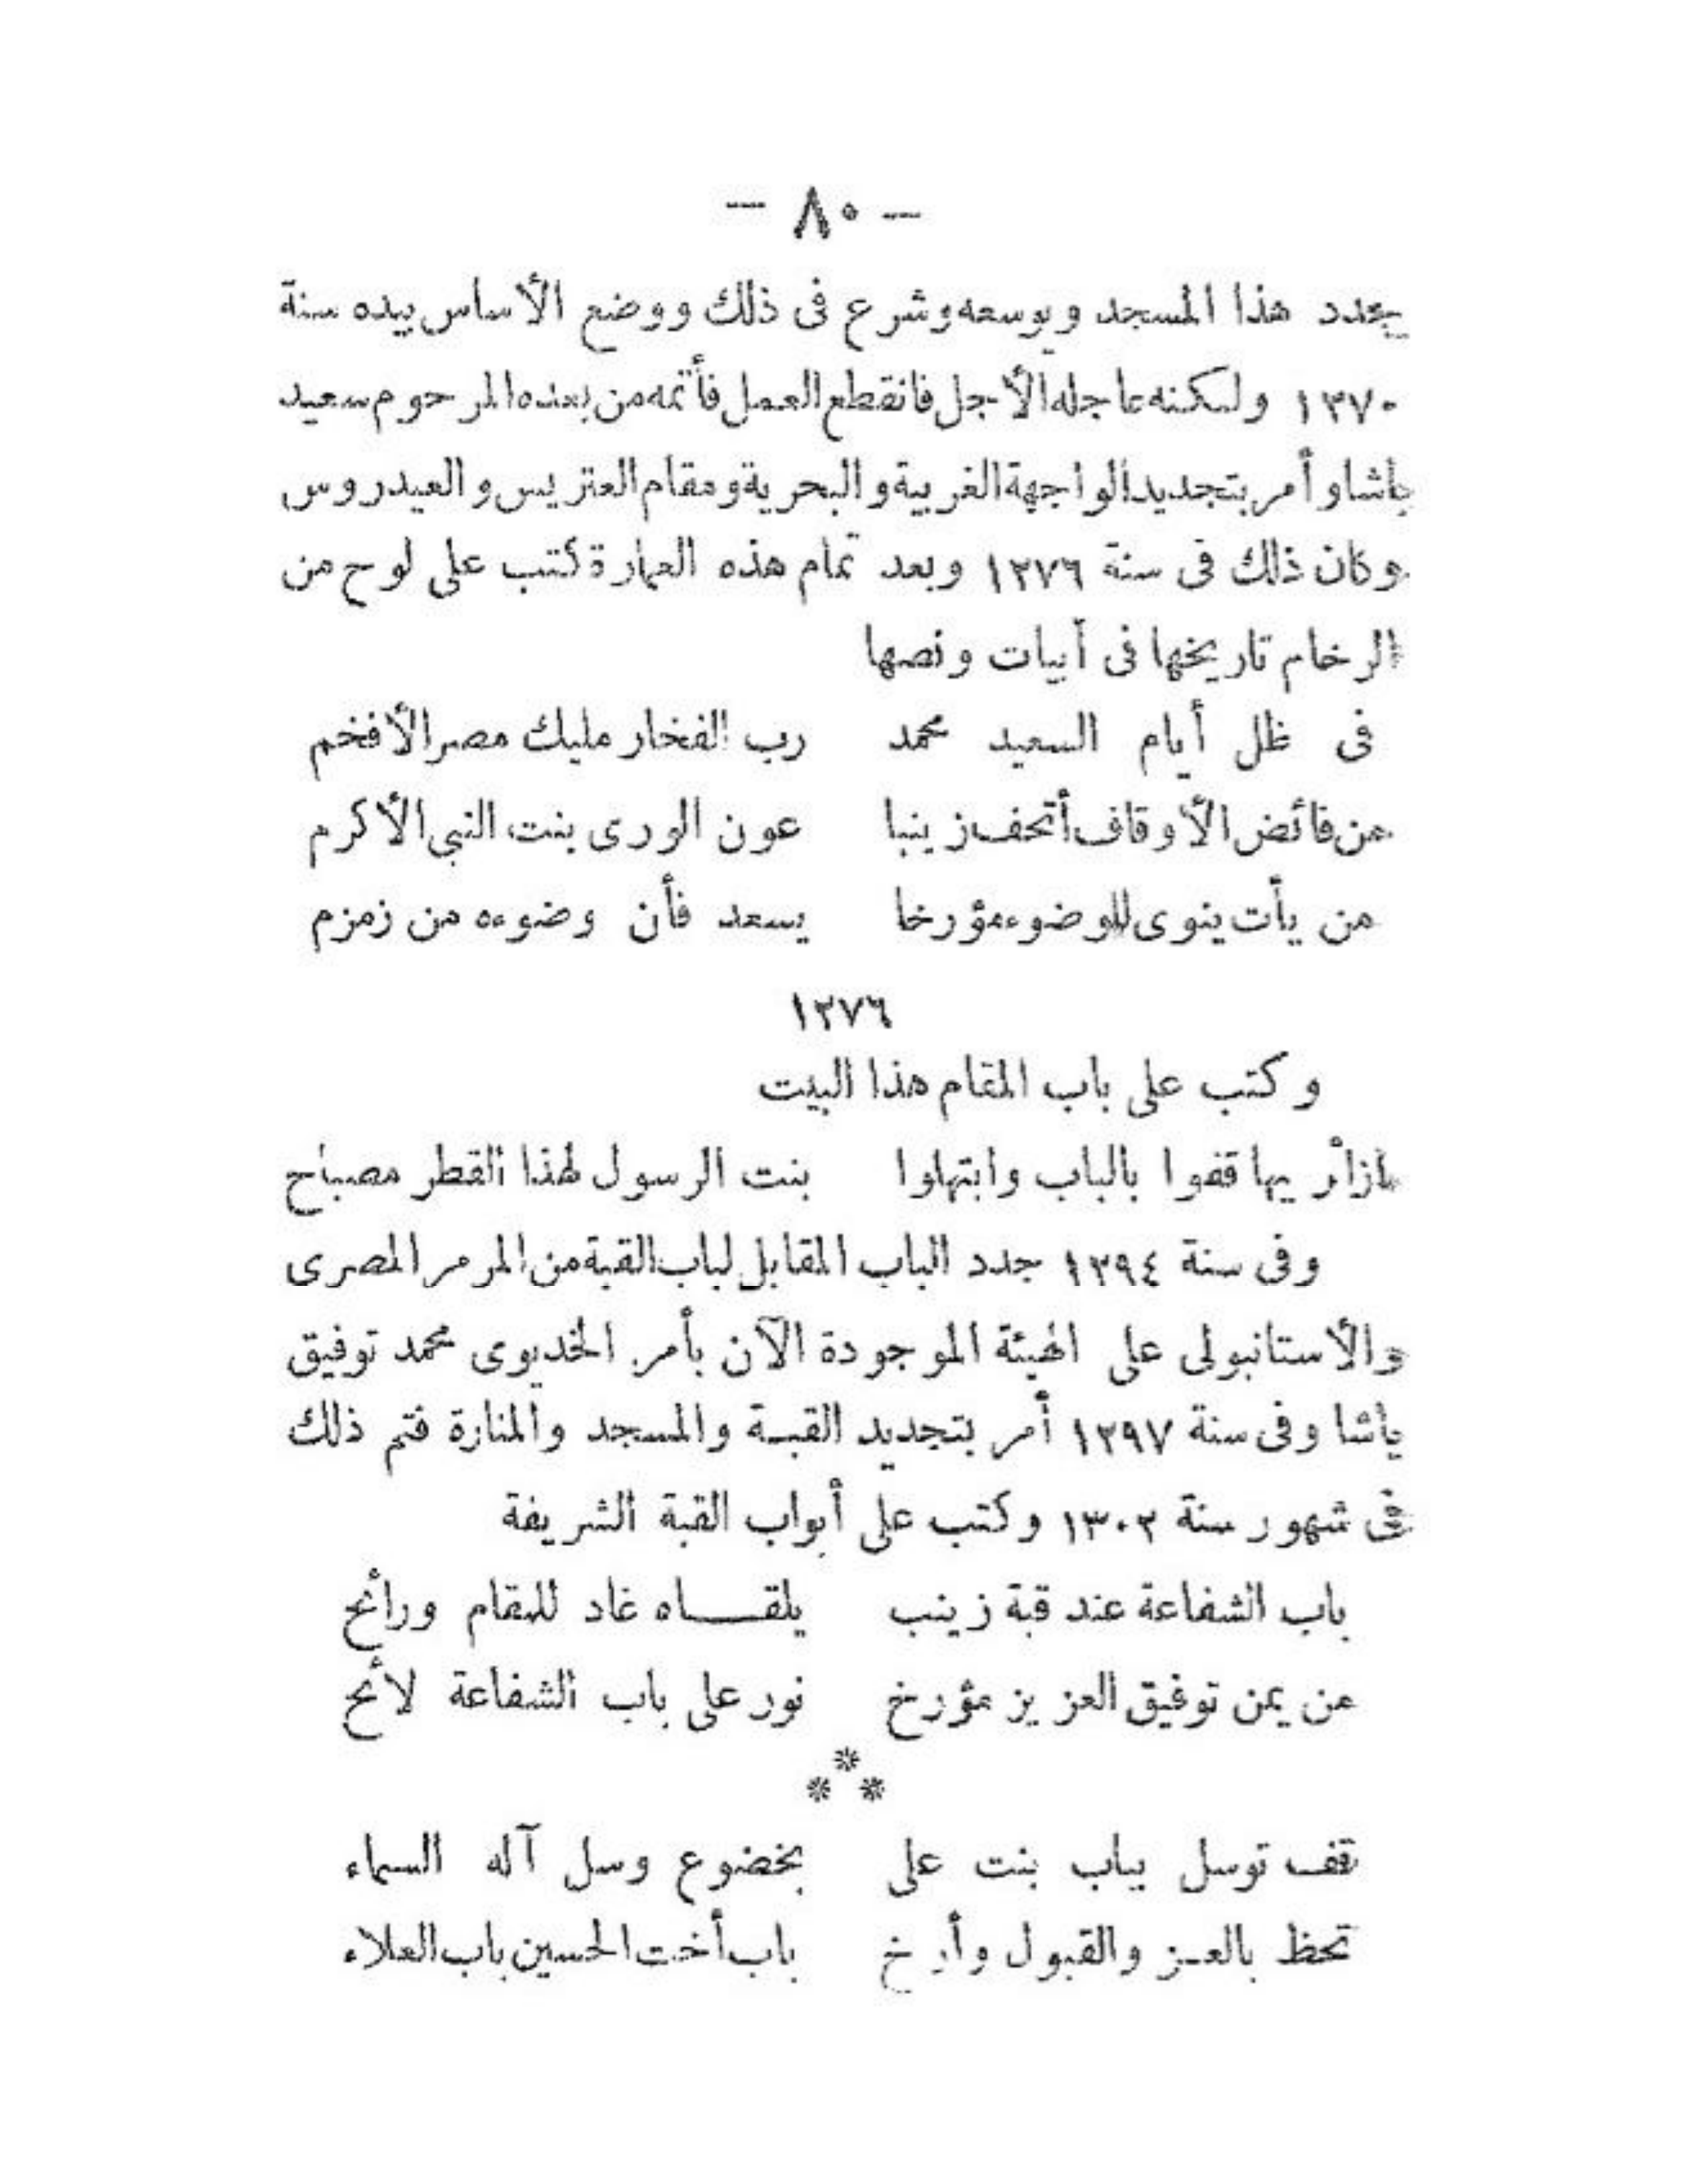 — ٨٠ —
يجدد هذا المسجد ويوسعه وشرع فى ذلك ووضع الأساس بيده سنة
١٢٧٠ ولكنه عاجله الأجل فانقطع العمل فأتمه من بعده المرحوم سعيد
باشا وأمر بتجديد الواجهة الغربية والبحرية ومقام العتريس والعيدروس
وكان ذلك فى سنة ١٢٧٦ وبعد تمام هذه العمارة كتب على لوح من
الرخام تاريخها فى أبيات ونصها
فى ظل أيام السعيد محمد رب الفخار مليك مصر الأفخم
من فائض الأوقاف أتحف زينبا عون الورى بنت النبى الأكرم
من يأت ينوى للوضوء مؤرخا يسعد فأن وضوءه من زمزم
١٢٧٦
وكتب على باب المقام هذا البيت
يازائريها قفوا بالباب وابتهلوا بنت الرسول لهذا القطر مصباح
وفى سنة ١٢٩٤ جدد الباب المقابل لباب القبة من المرمر المصرى
والأستانبولى على الهيئة الموجودة الآن بأمر الخديوى محمد توفيق
باشا وفى سنة ١٢٩٧ أمر بتجديد القبة والمسجد والمنارة فتم ذلك
فى شهور سنة ١٣٠٢ وكتب على أبواب القبة الشريفة
باب الشفاعة عند قبة زينب يلقاه غاد للمقام ورأئح
من يمن توفيق العزيز مؤرخ نور على باب الشفاعة لأئح
***
قف توسل بباب بنت على بخضوع وسل آله السماء
تحظ بالعز والقبول وأرخ باب أخت الحسين باب العلاء